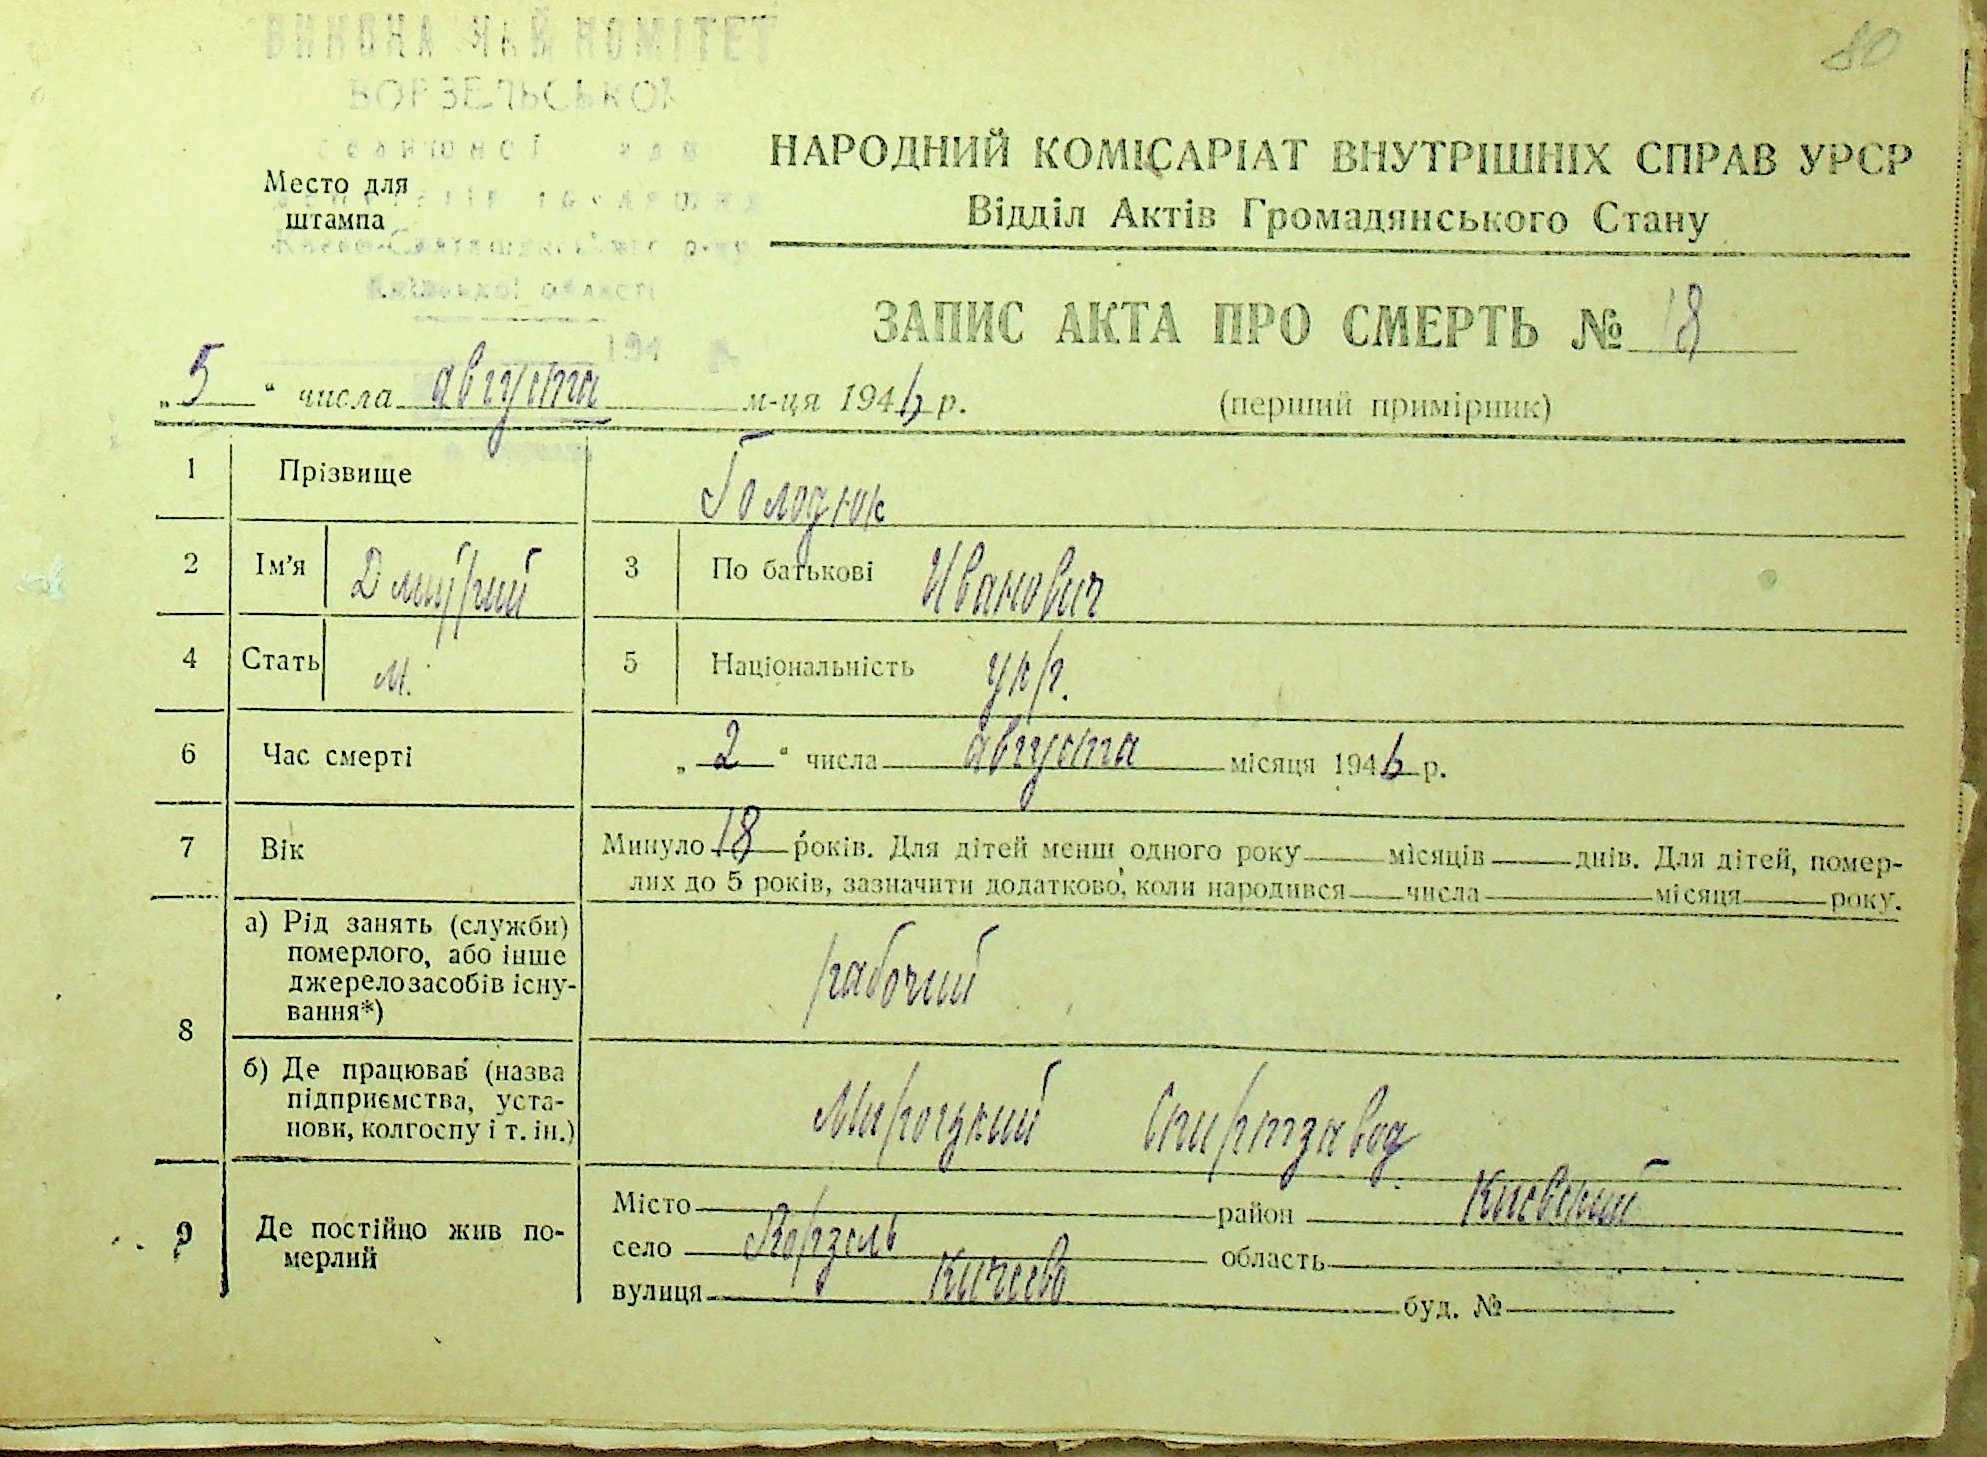 80
ВИКОНАВЧИЙ КОМІТЕТ
ВОРЗЕЛЬСЬКОЇ
Место для
штампа
області
194
НАРОДНИЙ КОМІСАРІАТ ВНУТРІШНІХ СПРАВ УРСР
Відділ Актів Громадянського Стану
ЗАПИС АКТА ПРО СМЕРТЬ № 18
„5“ числа августа м-ця 1946 р. (перший примірник)
1 Прізвище Голоднюк
2 Ім’я Дмитрий 3 По батькові Иванович
4 Стать М. 5 Національність укр.
6 Час смерті „2“ числа августа місяця 1946 р.
7 Вік Минуло 18 років. Для дітей менш одного року місяців днів. Для дітей, помер-
лих до 5 років, зазначити додатково, коли народився числа місяця року.
8 а) Рід занять (служби)
померлого, або інше
джерело засобів існу-
вання*)
рабочий
б) Де працював (назва
підприємства, уста-
нови, колгоспу і т. ін.)
Мироцкий Спиртзавод
9 Де постійно жив по-
мерлий
Місто район Киевский
село Ворзель область
вулиця Кичеево буд. №